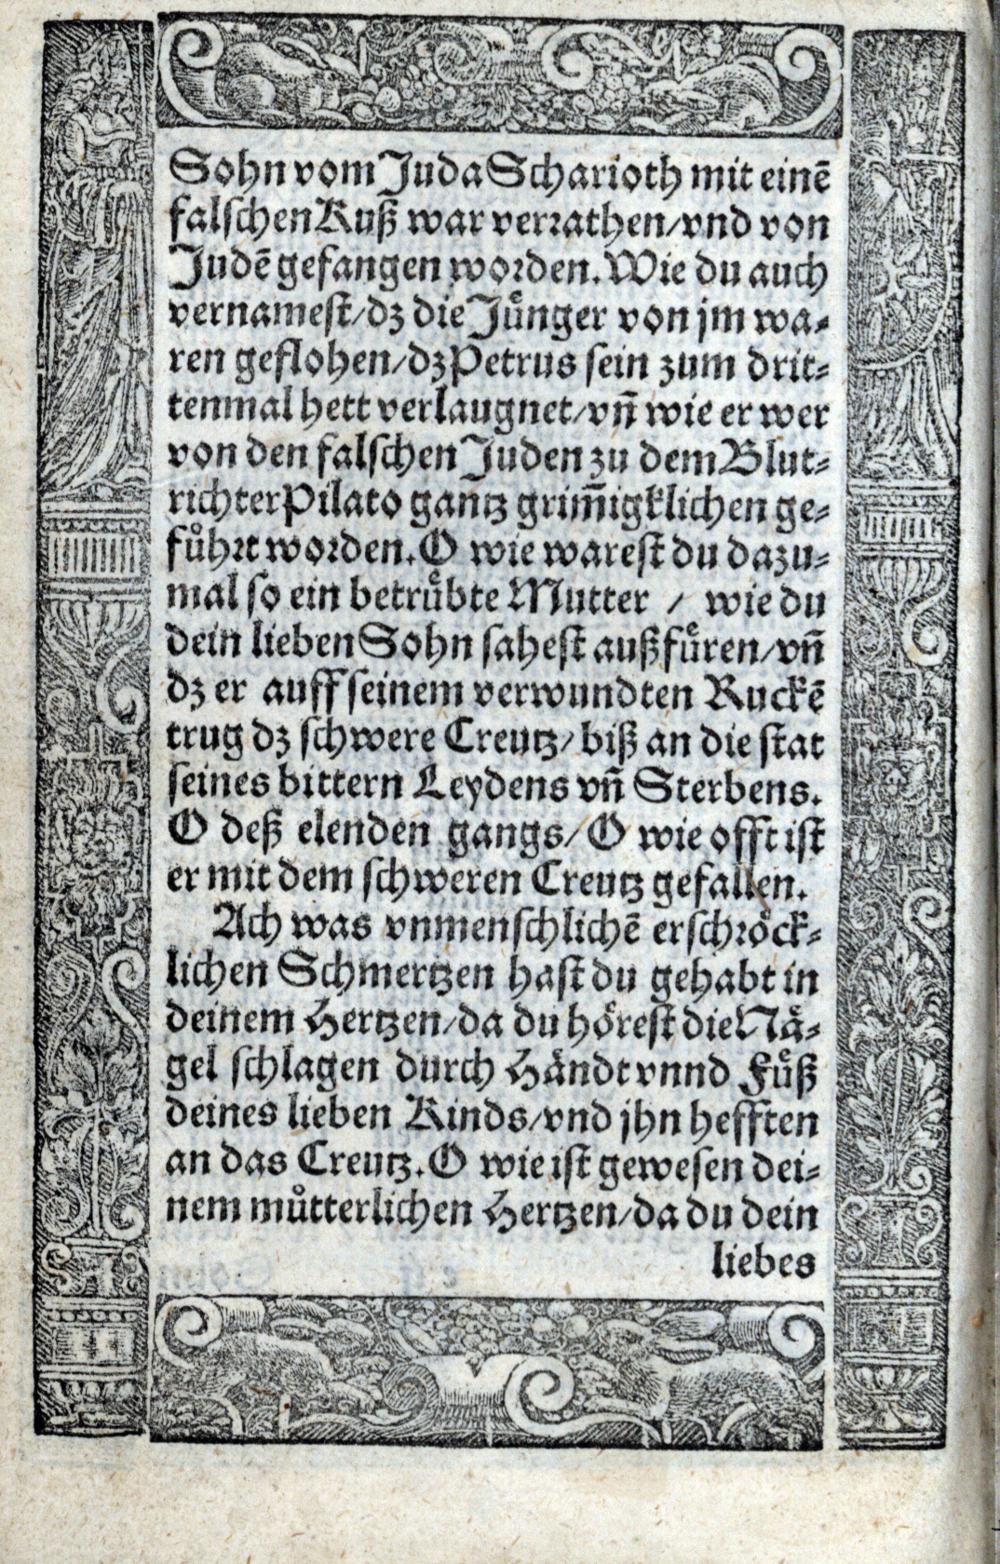 Sohn vom Juda Scharioth mit einē
falschen Kuß war verrathen/vnd von
Judē gefangen worden. Wie du auch
vernamest/dz die Jůnger von jm wa⸗
ren geflohen/dz Petrus sein zum drit⸗
tenmal hett verlaugnet/vñ wie er wer
von den falschen Juden zu dem Blut⸗
richter Pilato gantz grim̃igklichen ge⸗
fůhrt worden. O wie warest du dazu⸗
mal so ein betrůbte Mutter / wie du
dein lieben Sohn sahest außfůren/vñ
dz er auff seinem verwundten Ruckē
trug dz schwere Creutz/biß an die stat
seines bittern Leydens vñ Sterbens.
O deß elenden gangs/O wie offt ist
er mit dem schweren Creutz gefallen.
Ach was vnmenschlichē erschröck⸗
lichen Schmertzen hast du gehabt in
deinem Hertzen/da du hörest die Nä⸗
gel schlagen durch Händt vnnd Fůß
deines lieben Kinds/vnd jhn hefften
an das Creutz. O wie ist gewesen dei⸗
nem můtterlichen Hertzen/da du dein
liebes